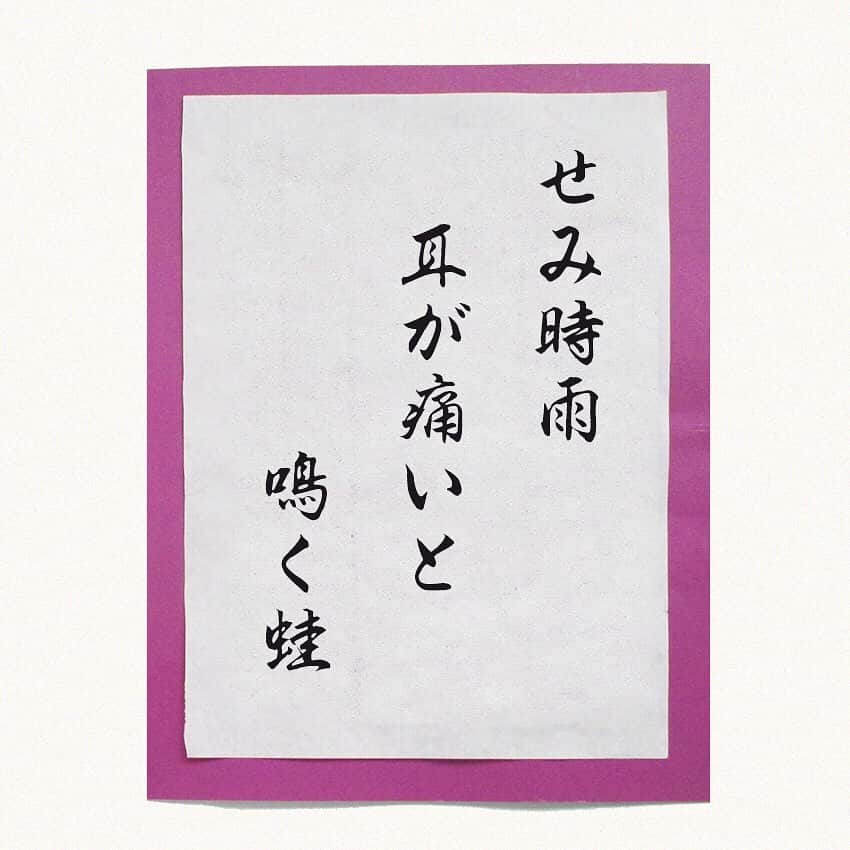 せみ時雨
耳が痛いと
鳴く蛙